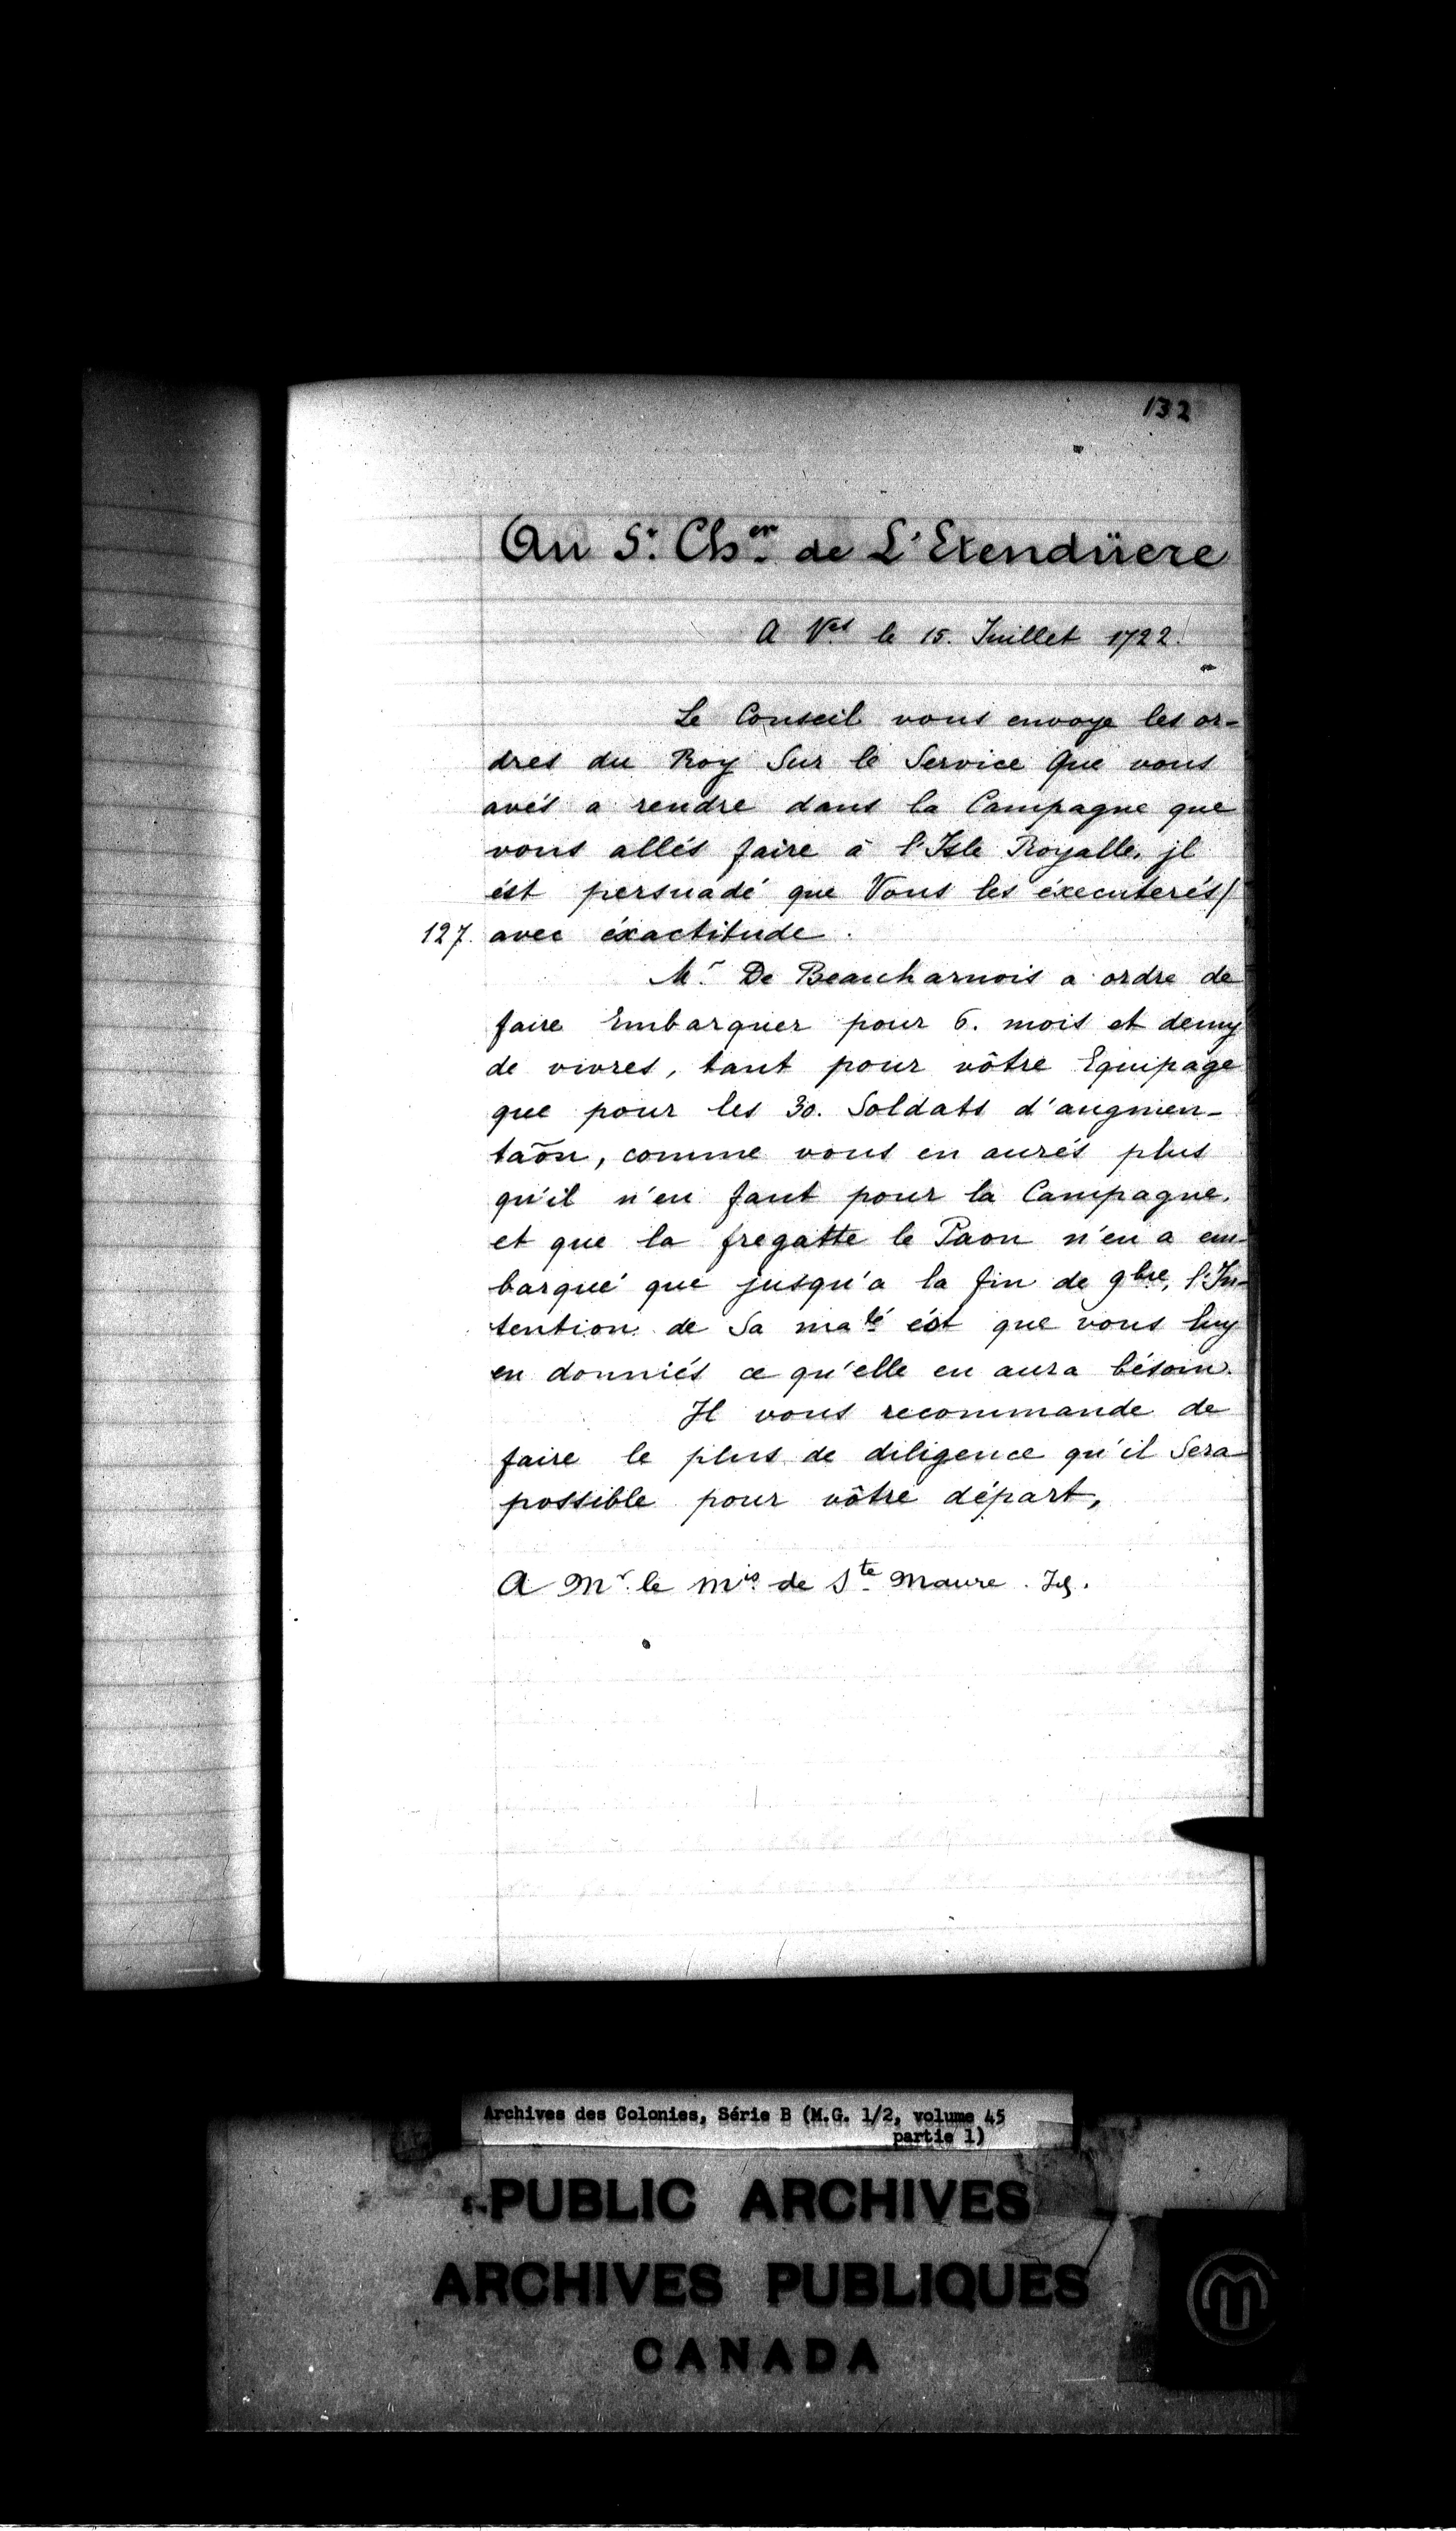 132
Au Sr. Cher. de L'Etendüere
A Vles le 15. Juillet 1722.
Le Conseil vous envoye les or-
dres du Roy Sur le Service Que vous
avés a rendre dans la Campagne que
vous allés faire à l'Isle Royalle, jl
ést persuadé que Vous les éxecuterés/
127. avec éxactitude.
Mr. De Beauharnois a ordre de
faire Embarquer pour 6. mois et demy
de vivres, tant pour vôtre Equipage
que pour les 30. Soldats d'augmen-
taõn, comme vous en aurés plus
qu'il n'en faut pour la Campagne.
et que la fregatte le Paon n'en a em-
barqué que jusqu'a la fin de 9bre, l'In-
tention de Sa maté ést que vous luy
en donniés ce qu'elle en aura bésoin.
Il vous recommande de
faire le plus de diligence qu'il Sera
possible pour vôtre départ,
A Mr. le Mis. de Ste Maure.
Archives des Colonies, Série B (M.G. 1/2, volume 45
partie 1)
PUBLIC ARCHIVES
ARCHIVES PUBLIQUES
CANADA